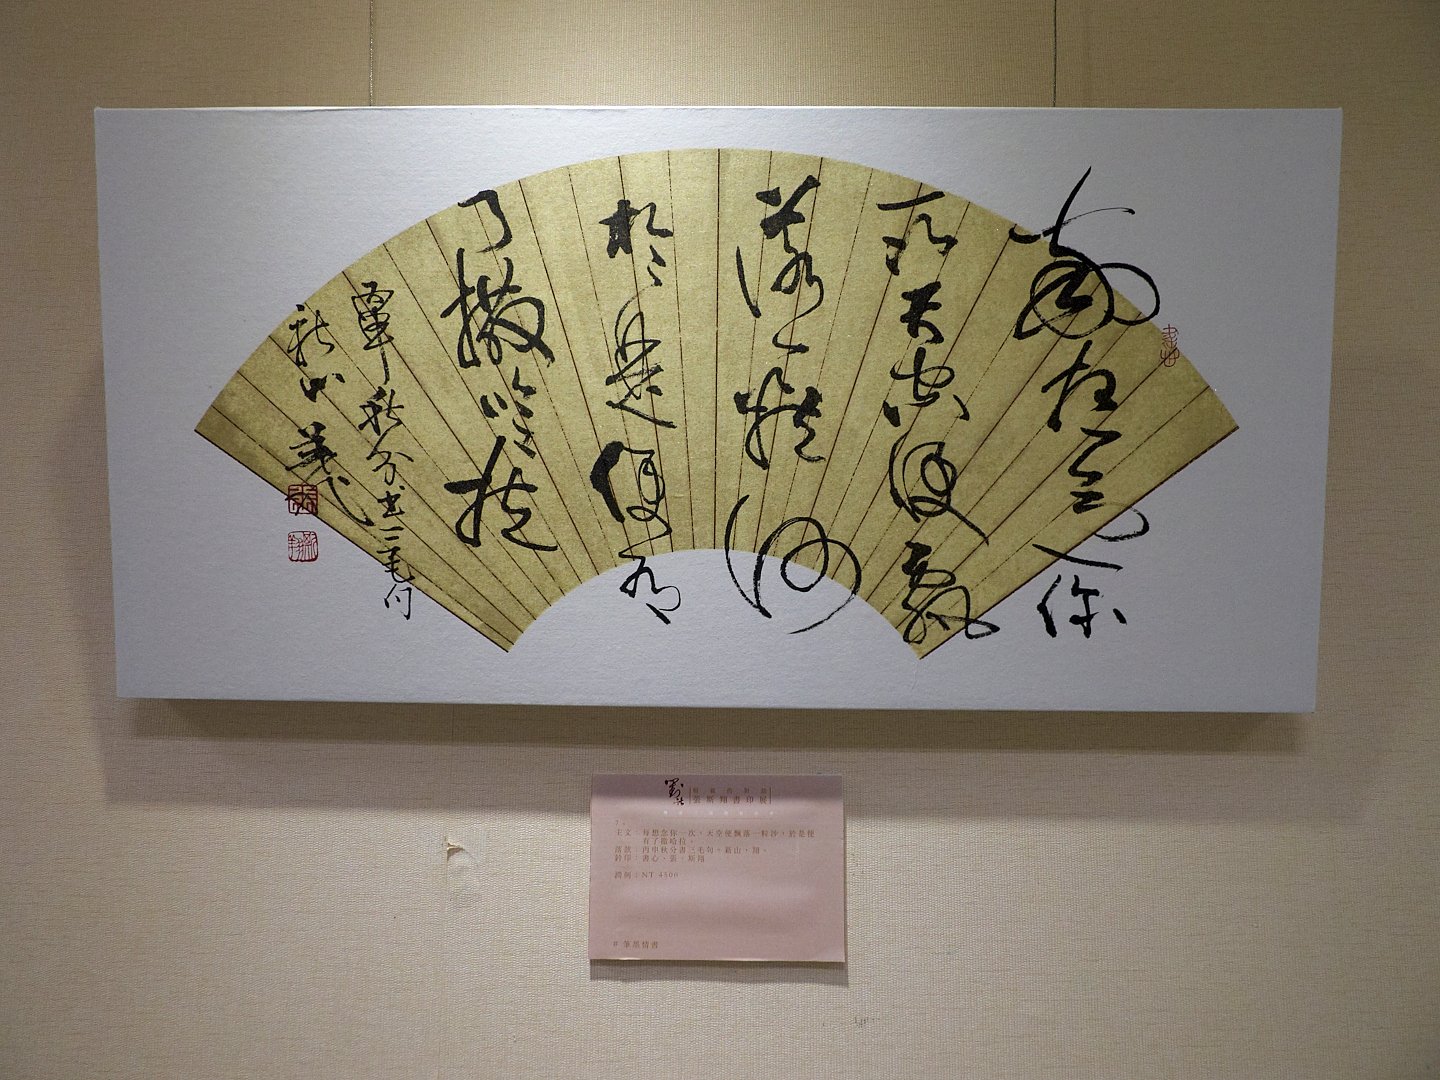 每想念你
一次天空便飄
落一粒沙
於是便有
了撒哈拉
丙申秋分書三毛句
新山 翔
張
斯翔
張斯翔書印展
7、
主文：每想念你一次，天空便飄落一粒沙，於是便
有了撒哈拉。
落款：丙申秋分書三毛句。新山，翔。
鈐印：書心、張、斯翔
潤例：NT 4500
# 筆墨情書